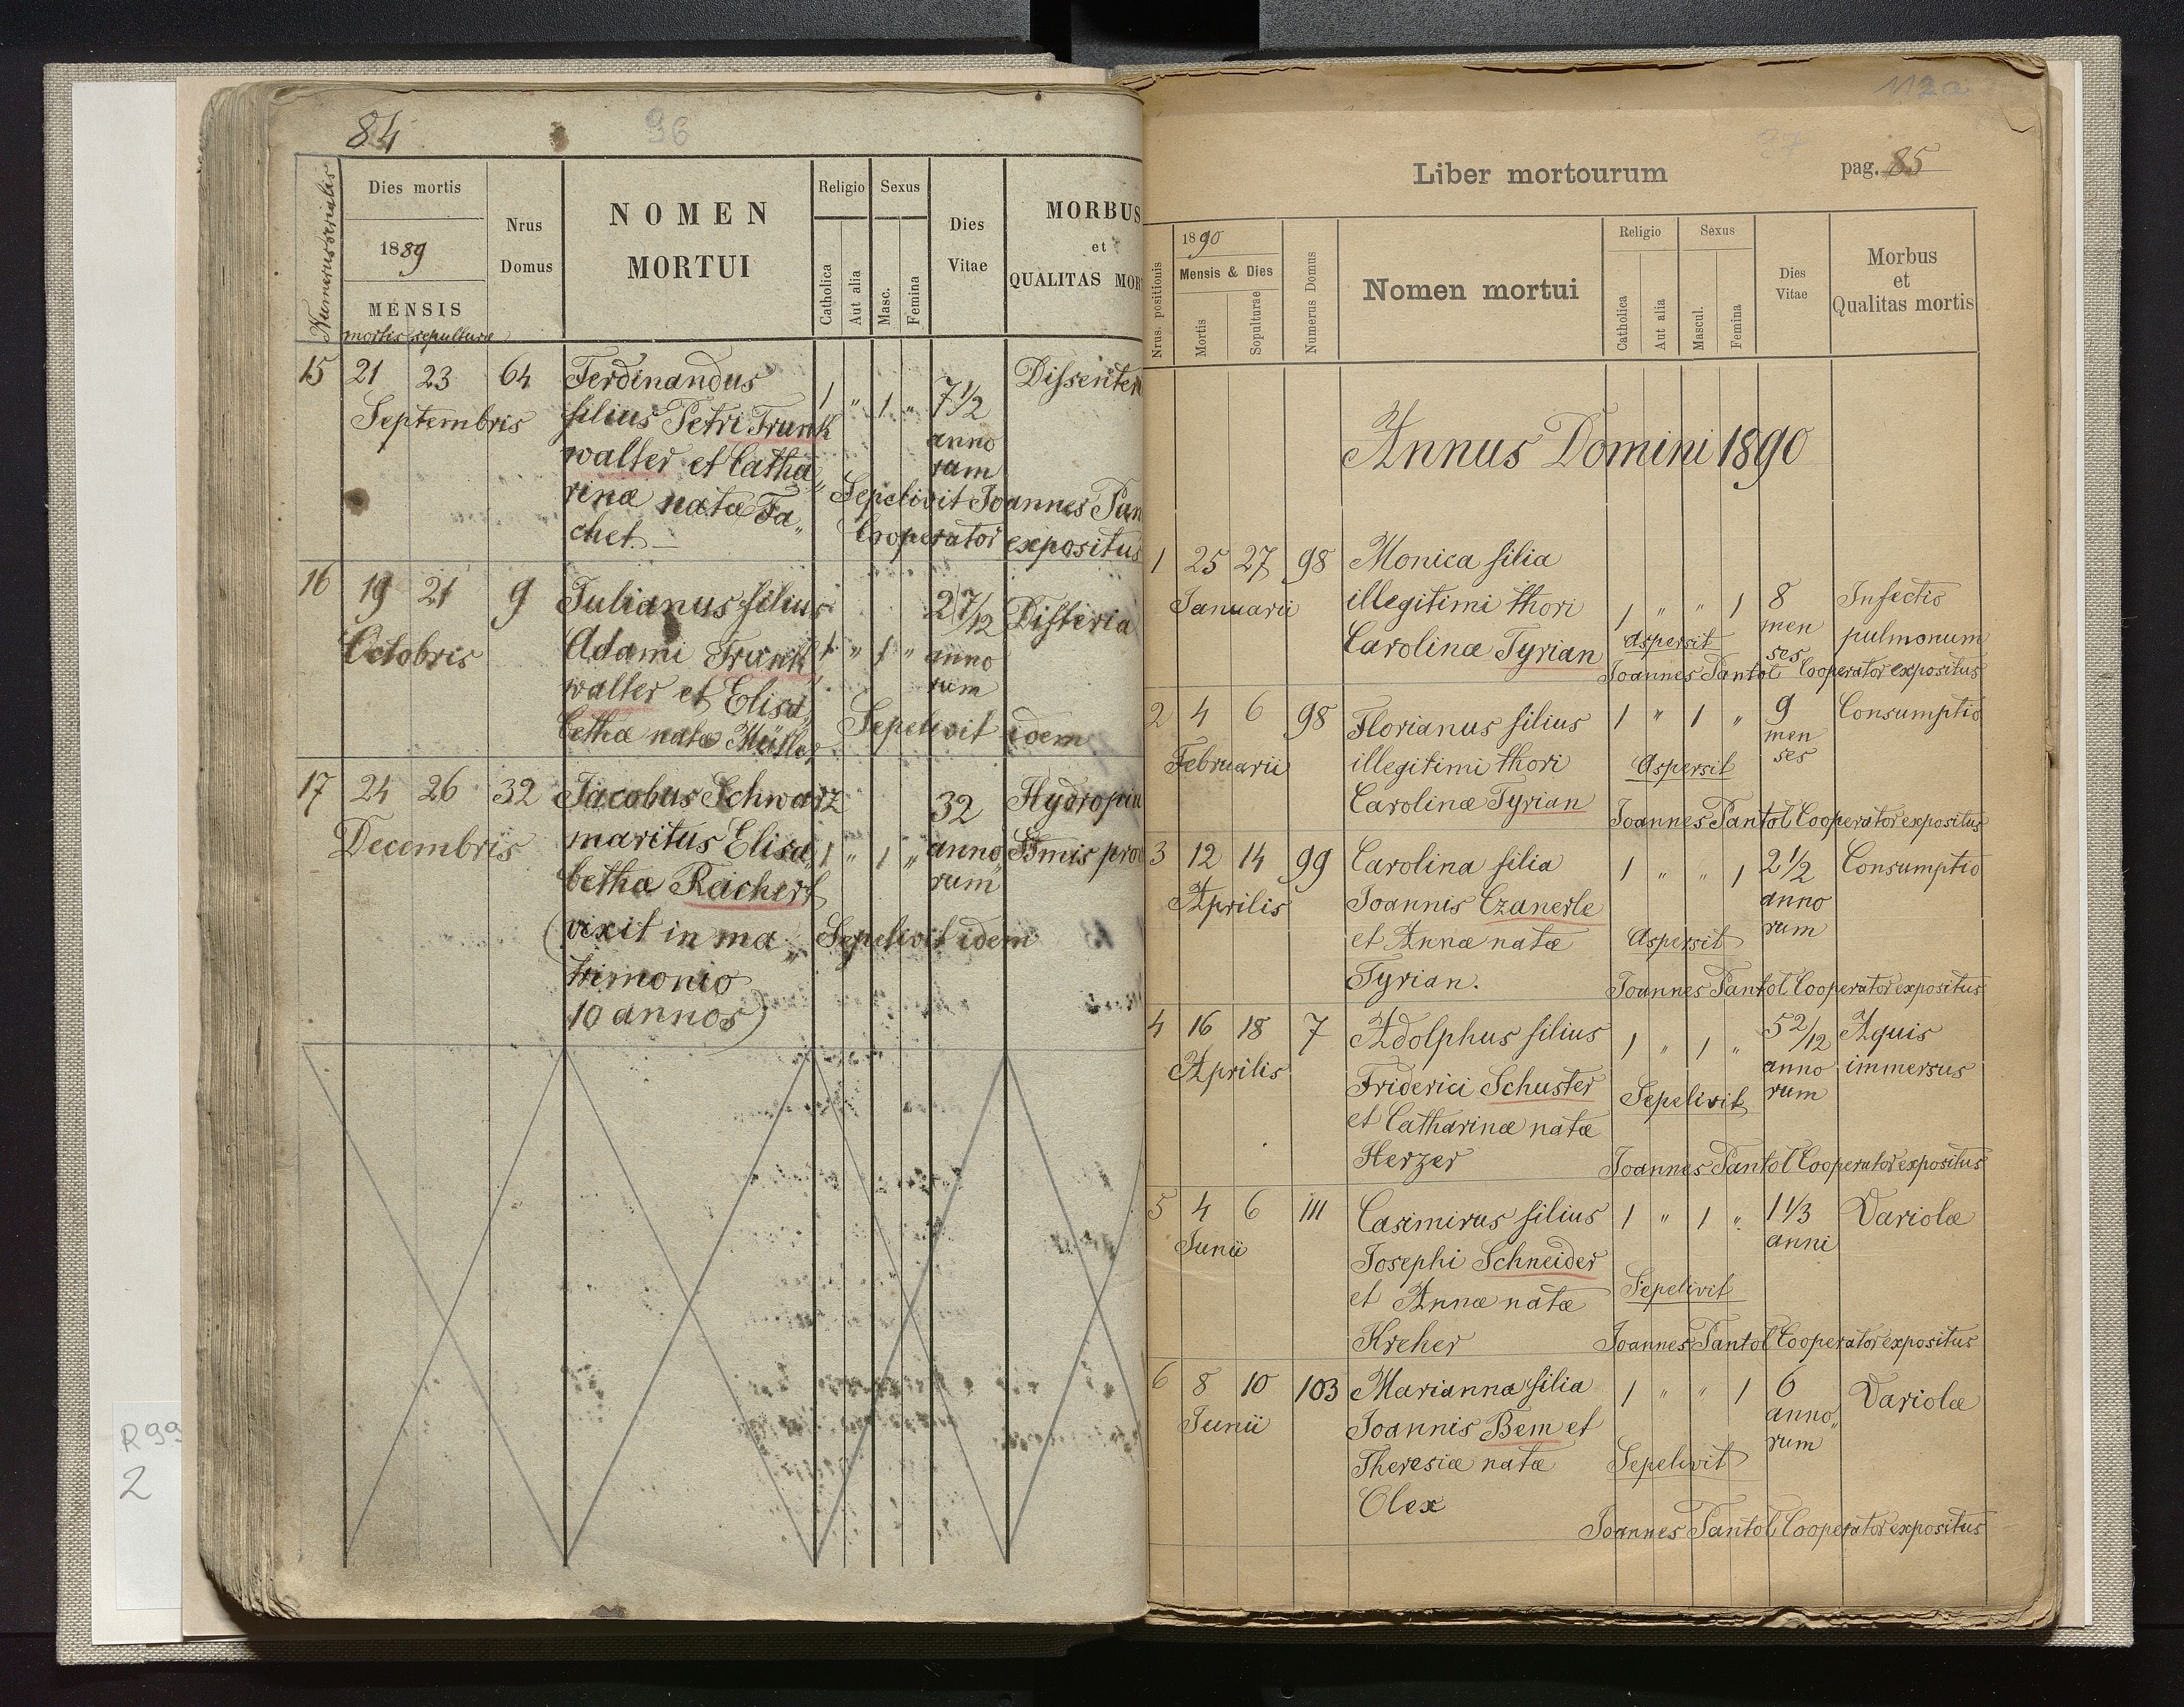 84
96
Numerus serialis
Dies mortis
1889
MENSIS
mortis sepulturæ
Nrus
Domus
NOMEN
MORTUI
Religio
Sexus
Catholica
Aut alia
Masc.
Femina
Dies
Vitae
MORBUS
et
QUALITAS MOR
15 21 23 64 Ferdinandus 1 " 1 " 7 1/2 Dissenter
Septembris filius Petri Trunk
anno
walter et Catha„
rum
rinæ nata Fa„
Sepelivit Joannes Pan
chet.
Cooperator expositus
16 19 21 9 Julianus filius 2 7/12 Difteria
Octobris Adami Trunk 1 " 1 " anno
walter et Elisa„
rum
bethæ natæ Müller
Sepelivit idem
17 24 26 32 Jacobus Schwarz 32 Hydropiu
Decembris maritus Elisa„ 1 " 1 „ anno
bethæ Reichert
rum
(vixit in ma„
Sepelivit idem
trimonio
10 annos)
R99
2
112a
97
Liber mortourum
pag. 85
Nrus. positionis
1890
Mensis & Dies
Mortis
Sepulturae
Numerus Domus
Nomen mortui
Religio
Sexus
Catholica
Aut alia
Mascul.
Femina
Dies
Vitae
Morbus
et
Qualitas mortis
Annus Domini 1890
1 25 27 98 Monica filia
Januarii illegitimi thori 1 " " 1 8 Infectio
men
pulmonum
Carolinæ Tyrian Aspersit ses
Joannes Pantol Cooperator expositus
2 4 6 98 Florianus filius 1 " 1 " 9 Consumptio
men
Februarii illegitimi thori Aspersit ses
Carolinæ Tyrian
Joannes Pantol Cooperator expositus
3 12 14 99 Carolina filia 1 " " 1 2 1/2 Consumptio
Aprilis Joannis Czanerle anno
et Annæ natæ Aspersit rum
Tyrian. Joannes Pantol Cooperator expositus
4 16 18 7 Adolphus filius 1 " 1 " 5 2/12 Aquis
Aprilis Friderici Schuster anno immersus
Sepelivit rum
et Catharinæ natæ
Herzer Joannes Pantol Cooperator expositus
5 4 6 111 Casimirus filius 1 " 1 " 1 1/3 Variolæ
Junii Josephi Schneider anni
et Annæ natæ Sepelivit
Kreher Joannes Pantol Cooperator expositus
6 8 10 103 Marianna filia 1 " " 1 6 Variolæ
Junii Joannis Bem et anno„
rum
Theresiæ natæ Sepelivit
Olex
Joannes Pantol Cooperator expositus